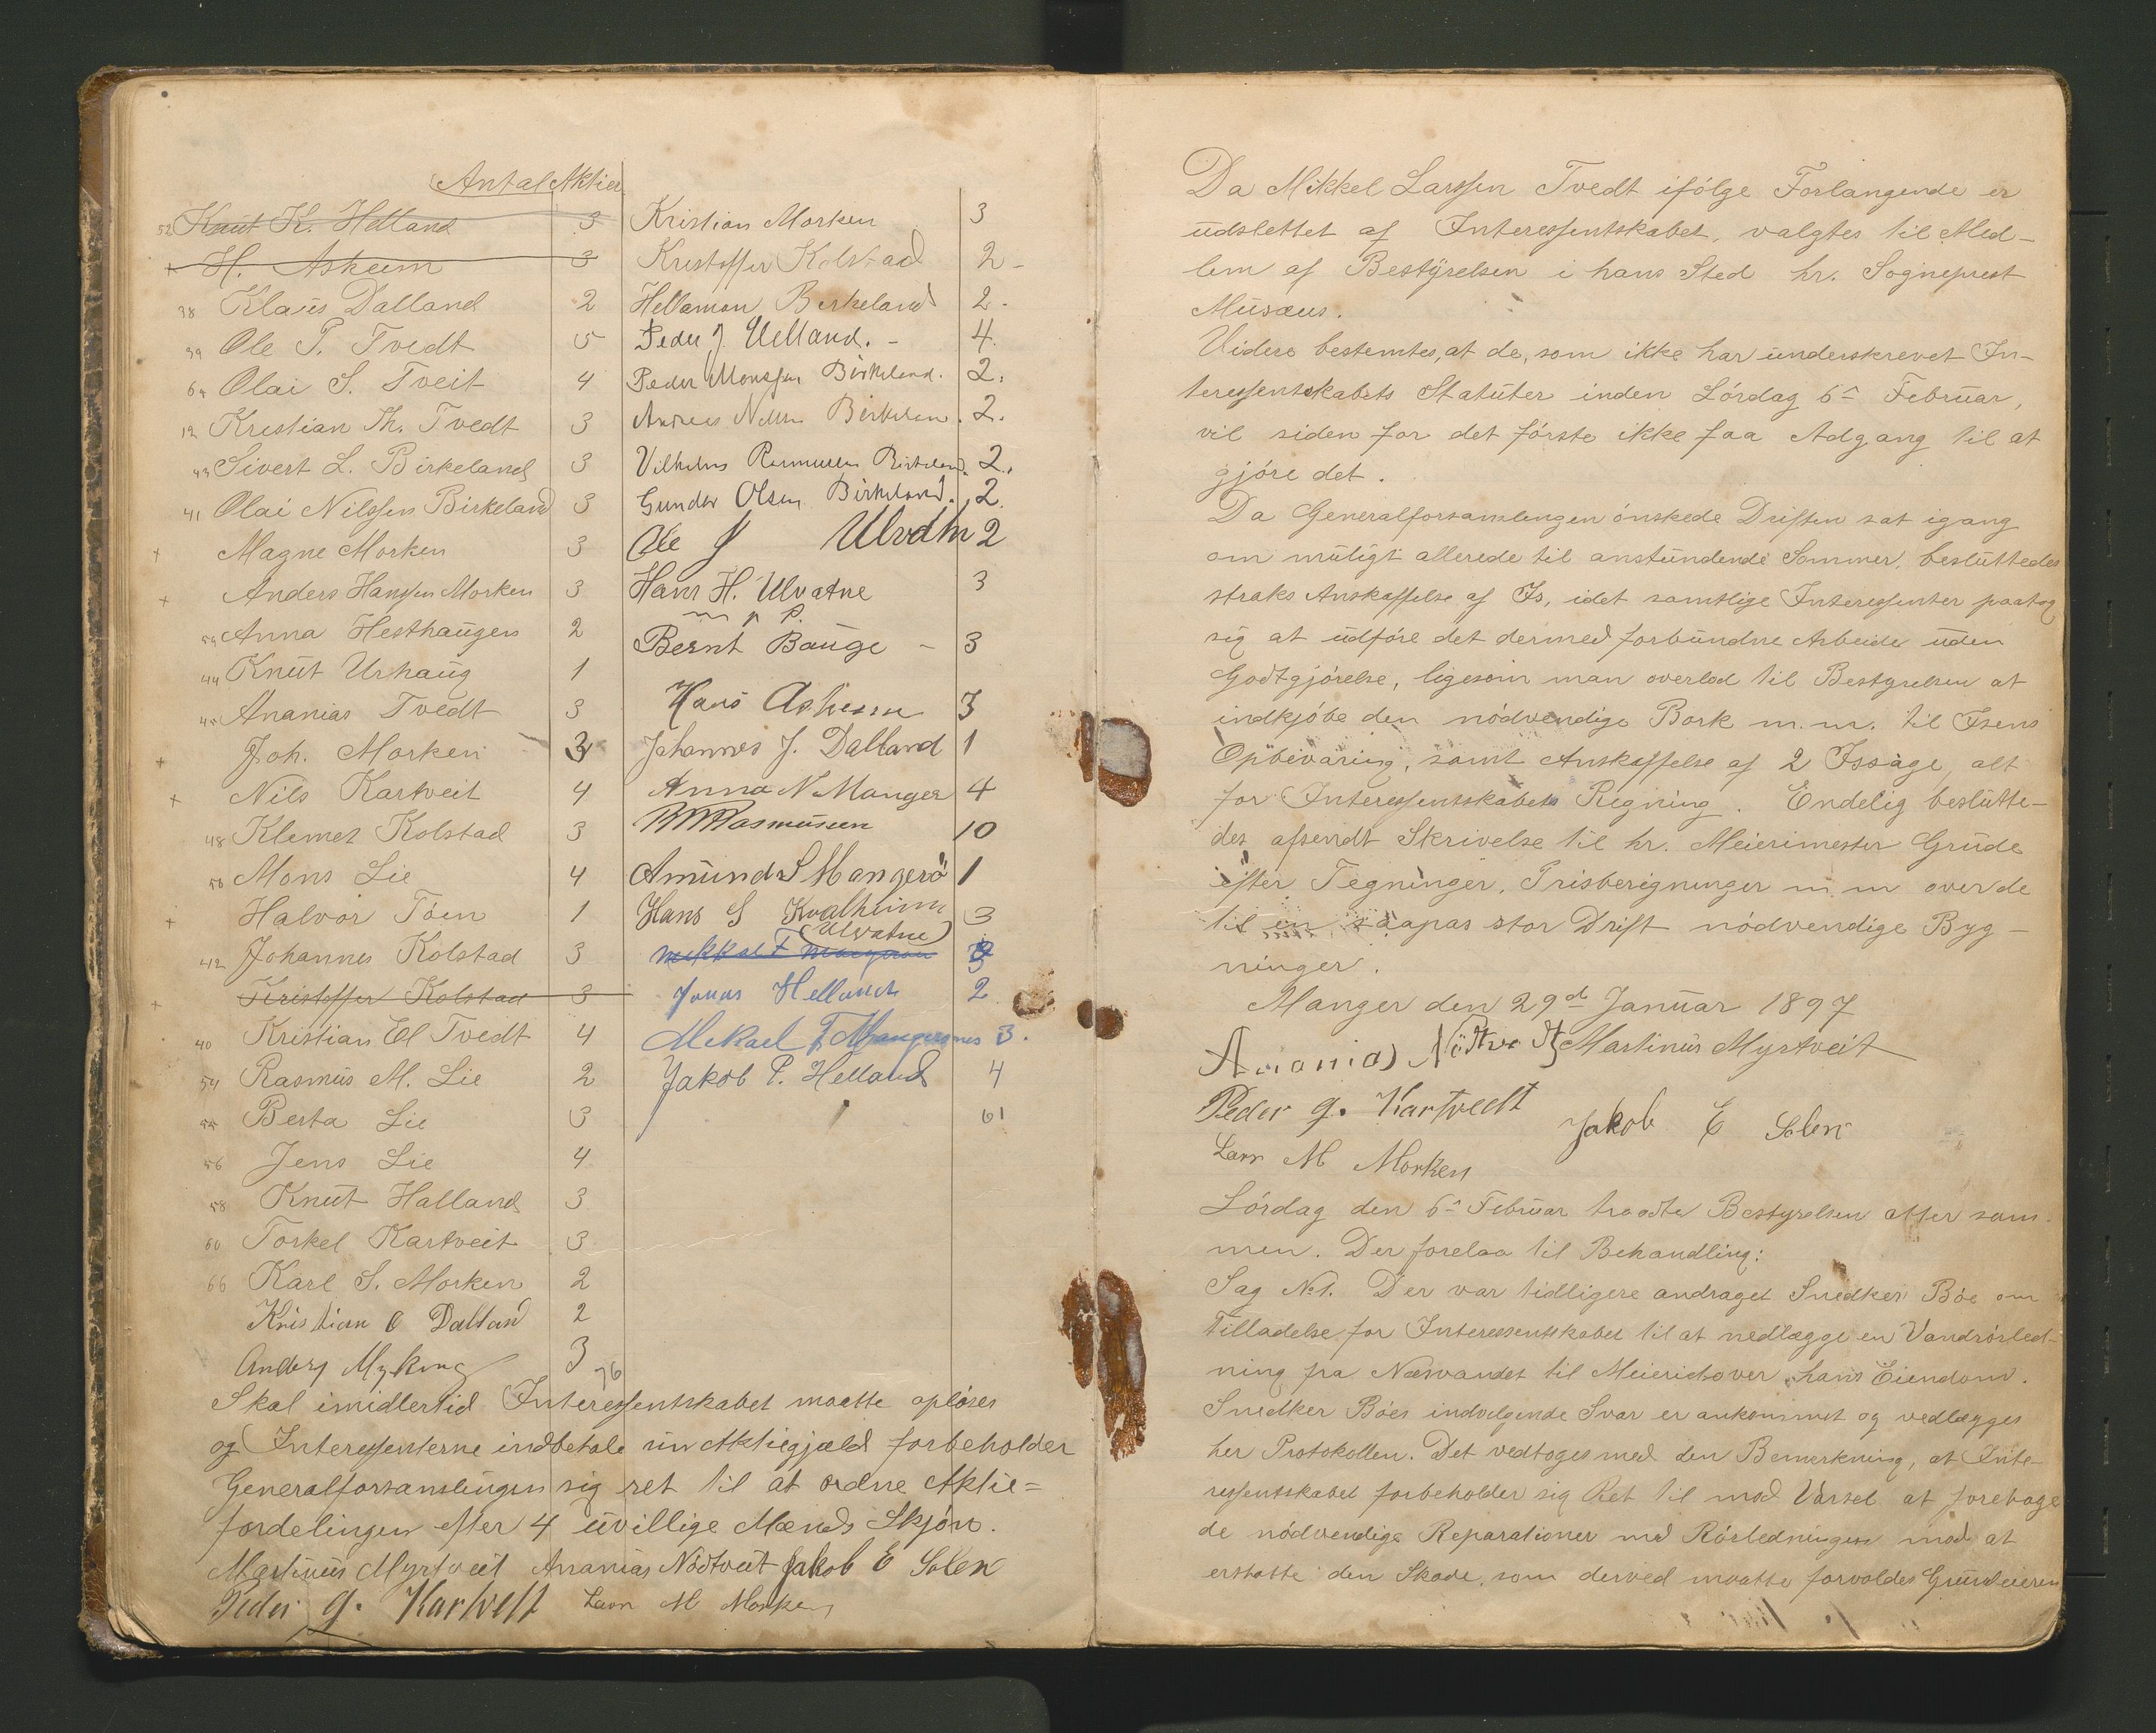 Antal Aktier
52 Knut K. Helland 3
+ H. Askeim 3
38 Klaus Dalland 2
39 Ole P. Tvedt 5
64 Olai S. Tveit 4
12 Kristian Th. Tvedt 3
43 Sivert L. Birkeland 3
41 Olai Nilssen Birkeland 3
+ Magne Morken 3
+ Anders Hanssen Morken 3
59 Anna Hesthaugen 2
44 Knut Urhaug 1
45 Ananias Tvedt 3
+ Joh. Morken 3
+ Nils Kartveit 4
48 Klemet Kolstad 3
50 Mons Lie 4
+ Halvor Töen 1
42 Johannes Kolstad 3
+ Kristoffer Kolstad 3
40 Kristian El Tvedt 4
54 Rasmus M. Lie 2
55 Berta Lie 3
56 Jens Lie 4
58 Knut Halland 3
60 Torkel Kartveit 3
66 Karl S. Morken 2
Kristian O Dalland 2
Anders Myking 3
76
Kristian Morken 3
Kristoffer Kolstad 2 -
Hellaman Birkeland 2 -
Peder J. Uelland. - 4.
Peder Monssen Birkeland. 2.
Andreas Birkeland. 2.
Vilhelms Rasmussen Birkeland. 2.
Gunder Olsen Birkeland. 2.
Ole J Ulvatn 2
Hans H. Ulvatne 3
p P.
Bernt Bauge - 3
Hans Askeim 3
Johannes J. Dalland 1
Anna N Manger 4
Rasmussen 10
Amund S Mangerö 1
Hans S Kvalheim 3
(Ulvatne)
Jonas Helland 2
Mekael F Mangersnes 3.
Jakob P. Helland 4
61
Skal imidlertid Interessentskabet maatte oplöses
og Interessenterne indbetale sin Aktiegjæld forbeholder
Generalforsamlingen sig ret til at ordne Aktie=
fordelingen efter 4 uvillige Mænds Skjön.
Martinus Myrtveit Ananias Nödtveit Jakob E Solen
Peder G. Kartveit Lars M Morken
Da Mikkel Larssen Tvedt ifölge Forlangende er
udslettet af Interessentskabet, valgtes til Med-
lem af Bestyrelsen i hans Sted hr. Sogneprest
Musæus.
Videre bestemtes, at de, som ikke har underskrevet In-
teressentskabets Statuter inden Lördag 6te Februar,
vil siden for det förste ikke faa Adgang til at
gjöre det.
Da Generalforsamlingen önskede Driften sat igang
om muligt allerede til anstundende Sommer, besluttedes
straks Anskaffelse af Is, idet samtlige Interessenter paatog
sig at udföre det dermed forbundne Arbeide uden
Godtgjörelse, ligesom man overlod til Bestyrelsen at
indkjöbe den nödvendige Bark m.m. til Isens
Opbevaring, samt Anskaffelse af 2 Issage, alt
for Interessentskabets Regning. Endelig beslutte-
des afsendt Skrivelse til hr. Meierimester Grude
efter Tegninger, Prisberigninger m.m over de
til en saapas stor Drift nödvendige Byg-
ninger.
Manger den 29de Januar 1897
Ananias Nödtvedt Martinus Myrtveit
Peder G. Kartvedt Jakob E Solen
Lars M Morken
Lördag den 6te Februar traadte Bestyrelsen atter sam-
men. Der forelaa til Behandling:
Sag No 1. Der var tidligere andraget Snedker Böe om
Tilladelse for Interessentskabet til at nedlægge en Vandrörled-
ning fra Næsvandet til Meieriet over hans Eiendom.
Snedker Böes indvilgende Svar er ankommet og vedlægges
her Protokollen. Det vedtoges med den Bemerkning, at Inte-
ressentskabet forbeholder sig Ret til mod Varsel at foretage
de nödvendige Reparationer med Rörledningen mod at
erstatte den Skade, som derved maatte forvoldes Grundeieren